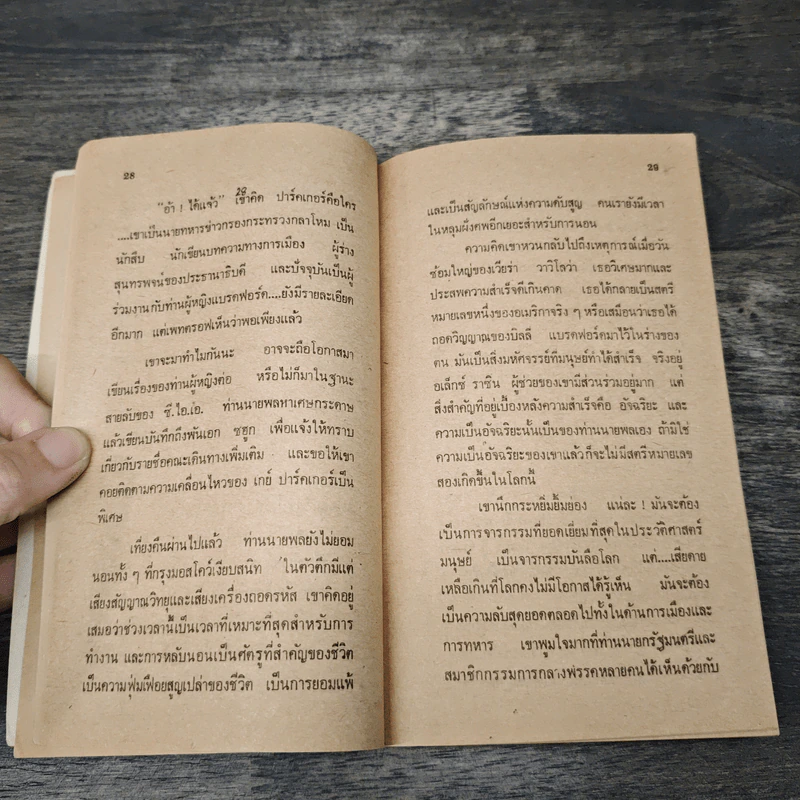 28
"อ้า ! ได้แจ้ว" เขาคิด ปาร์คเกอร์คือใคร
....เขาเป็นนายทหารข่าวกรองกระทรวงกลาโหม เป็น
นักสืบ นักเขียนบทความทางการเมือง ผู้ร่าง
สุนทรพจน์ของประธานาธิบดี และปัจจุบันเป็นผู้
ร่วมงานกับท่านผู้หญิงแบรดฟอร์ด....ยังมีรายละเอียด
อีกมาก แต่เพทครอฟเห็นว่าพอเพียงแล้ว
เขาจะมาทำไมกันนะ อาจจะถือโอกาสมา
เขียนเรื่องของท่านผู้หญิงต่อ หรือไม่ก็มาในฐานะ
สายลับของ ซี.ไอ.เอ. ท่านนายพลหาเศษกระดาษ
แล้วเขียนบันทึกถึงพันเอก ซฮุก เพื่อแจ้งให้ทราบ
เกี่ยวกับรายชื่อคณะเดินทางเพิ่มเติม และขอให้เขา
คอยติดตามความเคลื่อนไหวของ เกย์ ปาร์คเกอร์เป็น
พิเศษ
เที่ยงคืนผ่านไปแล้ว ท่านนายพลยังไม่ยอม
นอนทั้ง ๆ ที่กรุงมอสโคว์เงียบสนิท ในตัวตึกมีแต่
เสียงสัญญาณวิทยุและเสียงเครื่องถอดรหัส เขาคิดอยู่
เสมอว่าช่วงเวลานี้เป็นเวลาที่เหมาะที่สุดสำหรับการ
ทำงาน และการหลับนอนเป็นศัตรูที่สำคัญของชีวิต
เป็นความฟุ่มเฟือยสูญเปล่าของชีวิต เป็นการยอมแพ้
29
และเป็นสัญลักษณ์แห่งความดับสูญ คนเรายังมีเวลา
ในหลุมฝังศพอีกเยอะสำหรับการนอน
ความคิดเขาหวนกลับไปถึงเหตุการณ์เมื่อวัน
ซ้อมใหญ่ของเวียร่า วาวิโลว่า เธอวิเศษมากและ
ประสพความสำเร็จดีเกินคาด เธอได้กลายเป็นสตรี
หมายเลขหนึ่งของอเมริกาจริง ๆ หรือเสมือนว่าเธอได้
ถอดวิญญาณของบิลลี แบรดฟอร์ดมาไว้ในร่างของ
ตน มันเป็นสิ่งมหัศจรรย์ที่มนุษย์ทำได้สำเร็จ จริงอยู่
อเล็กซ์ ราซิน ผู้ช่วยของเขามีส่วนร่วมอยู่มาก แต่
สิ่งสำคัญที่อยู่เบื้องหลังความสำเร็จคือ อัจฉริยะ และ
ความเป็นอัจฉริยะนั้นเป็นของท่านนายพลเอง ถ้ามิใช่
ความเป็นอัจฉริยะของเขาแล้วก็จะไม่มีสตรีหมายเลข
สองเกิดขึ้นในโลกนี้
เขานึกกระหยิ่มยิ้มย่อง แน่ละ ! มันจะต้อง
เป็นการจารกรรมที่ยอดเยี่ยมที่สุดในประวัติศาสตร์
มนุษย์ เป็นจารกรรมบันลือโลก แต่....เสียดาย
เหลือเกินที่โลกคงไม่มีโอกาสได้รู้เห็น มันจะต้อง
เป็นความลับสุดยอดตลอดไปทั้งในด้านการเมืองและ
การทหาร เขาพูมใจมากที่ท่านนายกรัฐมนตรีและ
สมาชิกกรรมการกลางพรรคหลายคนได้เห็นด้วยกับ